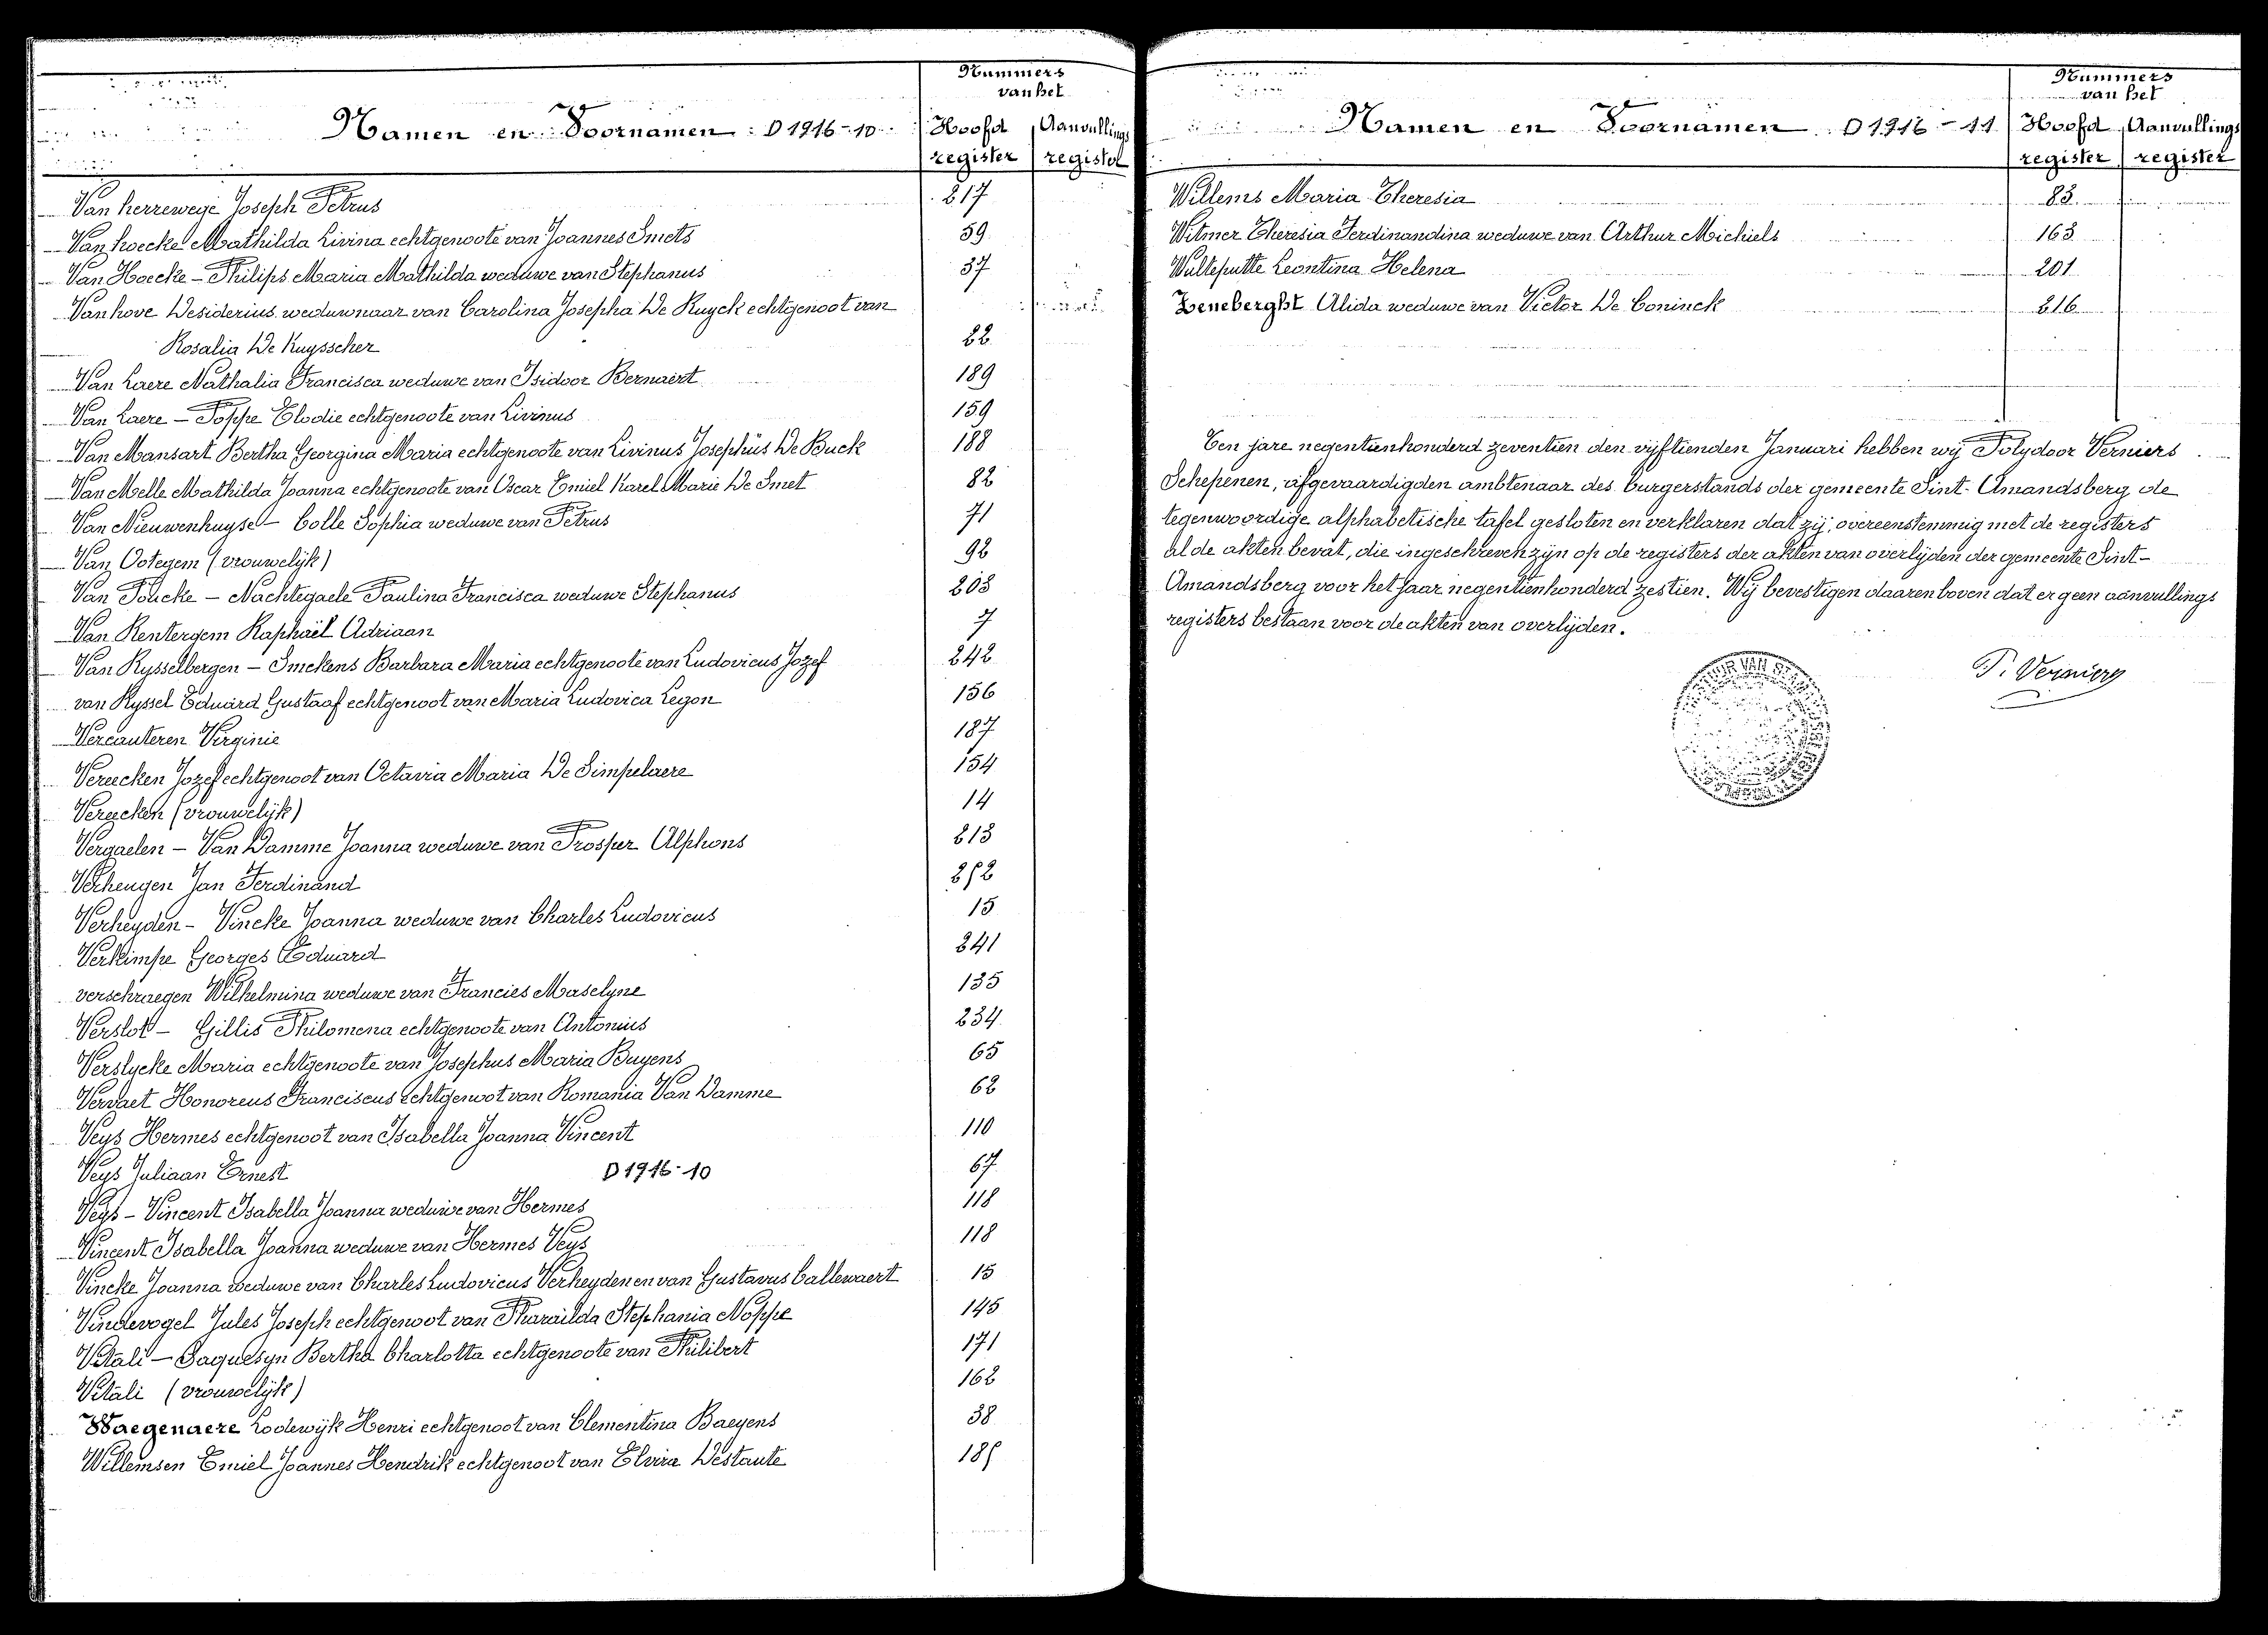 Nummers
van het
Namen en Voornamen : D 1916-10 Hoofd Aanvullings
register register
Van herrewege Joseph Petrus 217
Van hoecke Mathilda Livina echtgenoote van Joannes Smets 59
Van Hoecke - Philips Maria Mathilda weduwe van Stephanus 37
Van hove Desiderius weduwnaar van Carolina Josepha De Ruyck echtgenoot van
Rosalia De Kuysscher 22
Van Laere Nathalia Francisca weduwe van Isidoor Bernaert 189
Van Laere - Poppe Elodie echtgenoote van Livinus 159
Van Mansart Bertha Georgina Maria echtgenoote van Livinus Josephus De Buck 188
Van Melle Mathilda Joanna echtgenoote van Oscar Emiel Karel Marie De Smet 82
Van Nieuwenhuyse - Colle Sophia weduwe van Petrus 71
Van Ootegem (vrouwelijk) 92
Van Poucke - Nachtegaele Paulina Francisca weduwe Stephanus 203
Van Rentergem Raphaël Adriaan 7
Van Rysselbergen - Smekens Barbara Maria echtgenoote van Ludovicus Jozef 242
van Ryssel Eduard Gustaaf echtgenoot van Maria Ludovica Legon 156
Vercauteren Virginie 187
Vereecken Jozef echtgenoot van Octavia Maria De Simpelaere 154
Vereecken (vrouwelijk) 14
Vergaelen - Van Damme Joanna weduwe van Prosper Alphons 213
Verheugen Jan Ferdinand 252
Verheyden - Vincke Joanna weduwe van Charles Ludovicus 15
Verkimpe Georges Eduard 241
verschraegen Wilhelmina weduwe van Francies Maselyne 135
Verslot - Gillis Philomena echtgenoote van Antonius 234
Verslycke Maria echtgenoote van Josephus Maria Buyens 65
Vervaet Honoreus Franciscus echtgenoot van Romania Van Damme 62
Veys Hermes echtgenoot van Isabella Joanna Vincent 110
Veys Juliaan Ernest D 1916-10 67
Veys - Vincent Isabella Joanna weduwe van Hermes 118
Vincent Isabella Joanna weduwe van Hermes Veys 118
Vincke Joanna weduwe van Charles Ludovicus Verheyden en van Gustavus Callewaert 15
Vindevogel Jules Joseph echtgenoot van Pharaïlda Stephania Noppe 145
Vitali - Saquesyn Bertha Charlotta echtgenoote van Philibert 171
Vitali (vrouwelijk) 162
Waegenaere Lodewijk Henri echtgenoot van Clementina Baeyens 38
Willemsen Emiel Joannes Hendrik echtgenoot van Elvira Destaute 185
Nummers
van het
Namen en Voornamen D 1916 - 11 Hoofd Aanvullings
register register
Willems Maria Theresia 83
Witmer Theresia Ferdinandina weduwe van Arthur Michiels 163
Wulteputte Leontina Helena 201
Zeneberght Alida weduwe van Victor De Coninck 216
Ten jare negentienhonderd zeventien den vyftienden Januari hebben wij Polydoor Verniers
Schepenen, afgevaardigden ambtenaar des burgerstands der gemeente Sint-Amandsberg de
tegenwoordige alphabetische tafel gesloten en verklaren dat zij, overeenstemmig met de registers
al de akten bevat, die ingeschreven zijn op de registers der akten van overlijden der gemeente Sint-
Amandsberg voor het jaar negentienhonderd zestien. Wij bevestigen daarenboven dat er geen aanvullings
registers bestaan voor de akten van overlijden.
P. Verniers